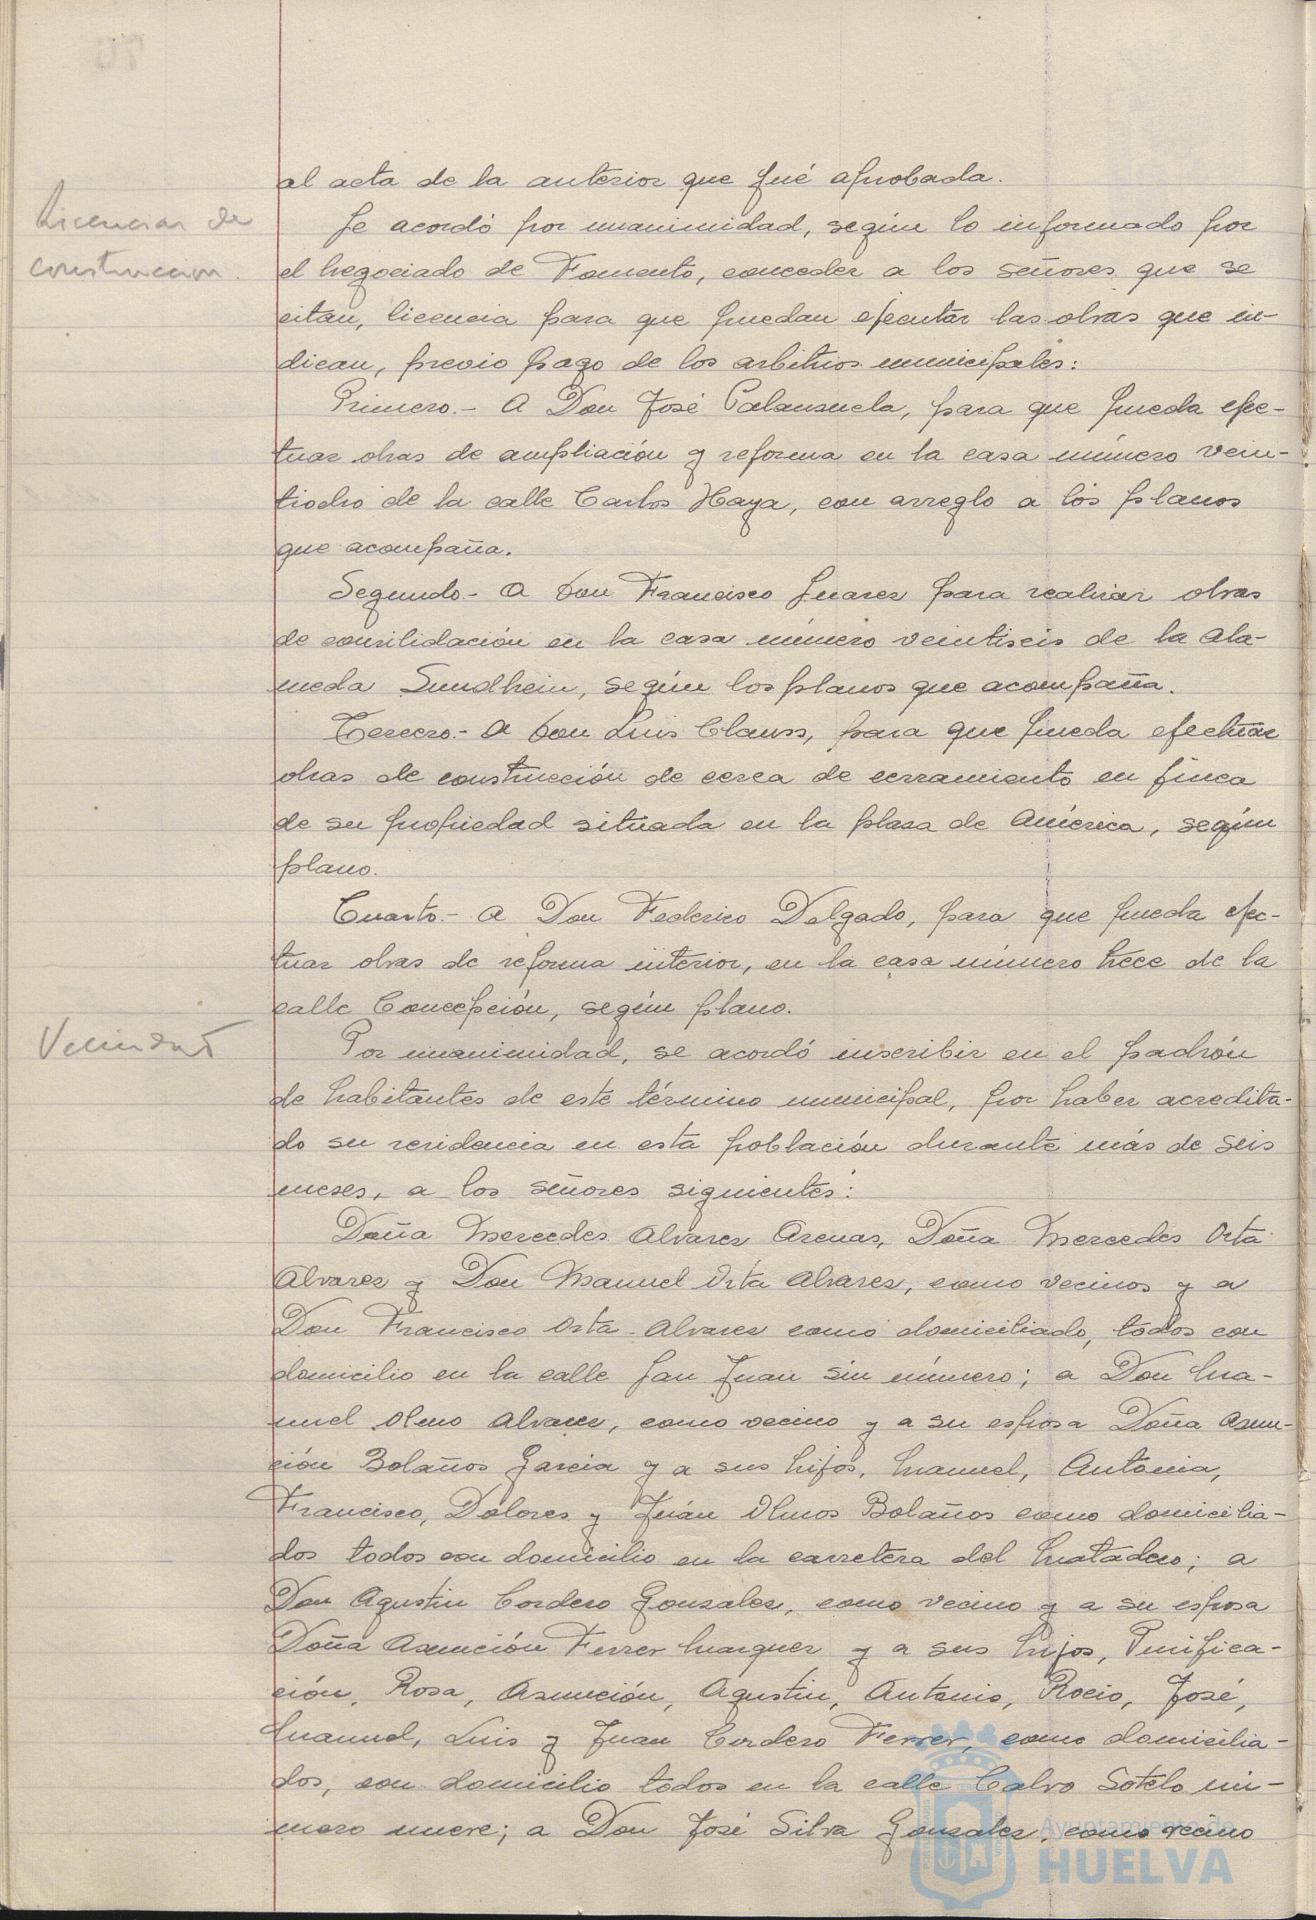 al acta de la anterior que fué aprobada.
Licencias de
construccion.
Se acordó por unanimidad, según lo informado por
el Negociado de Fomento, conceder a los señores que se
citan, licencia para que puedan ejecutar las obras que in-
dican, previo pago de los arbitrios municipales:
Primero.- A Don José Palanzuela, para que pueda efec-
tuar obras de ampliación y reforma en la casa número vein-
tiocho de la calle Carlos Haya, con arreglo a los planos
que acompaña.
Segundo.- A Don Francisco Juarez para realizar obras
de consilidación en la casa número veintiseis de la Ala-
meda Sundhein, según los planos que acompaña.
Tercero.- A Don Luis Clauss, para que pueda efectuar
obras de construcción de cerca de cerramiento en finca
de su propiedad situada en la plaza de América, según
plano.
Cuarto.- A Don Federico Delgado, para que pueda efec-
tuar obras de reforma interior, en la casa número trece de la
calle Concepción, según plano.
Vecindad
Por unanimidad, se acordó inscribir en el padrón
de habitantes de este término municipal, por haber acredita-
do su residencia en esta población durante más de seis
meses, a los señores siguientes:
Doña Mercedes Alvarez Arenas, Doña Mercedes Orta
Alvarez y Don Manuel Orta Alvarez, como vecinos y a
Don Francisco Orta Alvarez como domiciliado, todos con
domicilio en la calle San Juan sin número; a Don Ma-
nuel Olmo Alvarez, como vecino y a su esposa Doña Asun-
ción Bolaños Garcia y a sus hijos, Manuel, Antonia,
Francisco, Dolores y Juán Olmos Bolaños como domicilia-
dos todos con domicilio en la carretera del Matadero; a
Don Agustin Cordero Gonzalez, como vecino y a su esposa
Doña Asunción Ferrer Marquez y a sus hijos, Purifica-
ción, Rosa, Asunción, Agustin, Antonio, Rocio, José,
Manuel, Luis y Juan Cordero Ferrer, como domicilia-
dos, con domicilio todos en la calle Calvo Sotelo nú-
mero nueve; a Don José Silva Gonzalez, como vecino
Ayuntamiento de
HUELVA